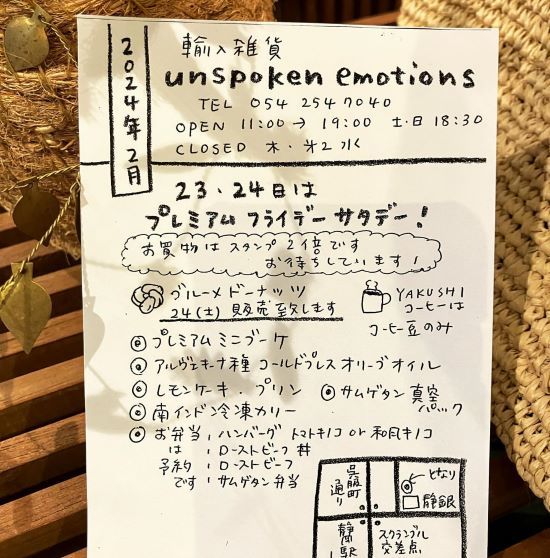 2024年2月
輸入雑貨
unspoken emotions
TEL 054 254 7040
OPEN 11:00→19:00 土・日 18:30
CLOSED 木・オ2水
23・24日は
プレミアム フライデー サタデー!
お買物はスタンプ2倍です
お待ちしています!
ブルーメドーナッツ
24(土)販売致します
YAKUSHI
コーヒーは
コーヒー豆のみ
◎プレミアム ミニブーケ
◎アルヴェキーナ種 コールドプレス オリーブオイル
◎レモンケーキ・プリン ◎サムゲタン 真空
パック
◎南インド冷凍カリー
◎お弁当 : ハンバーグ トマトキノコ or 和風キノコ
は : ローストビーフ丼
予約 : ローストビーフ
です : サムゲタン弁当
呉服町
通り
となり
静銀
静岡
駅
スクランブル
交差点